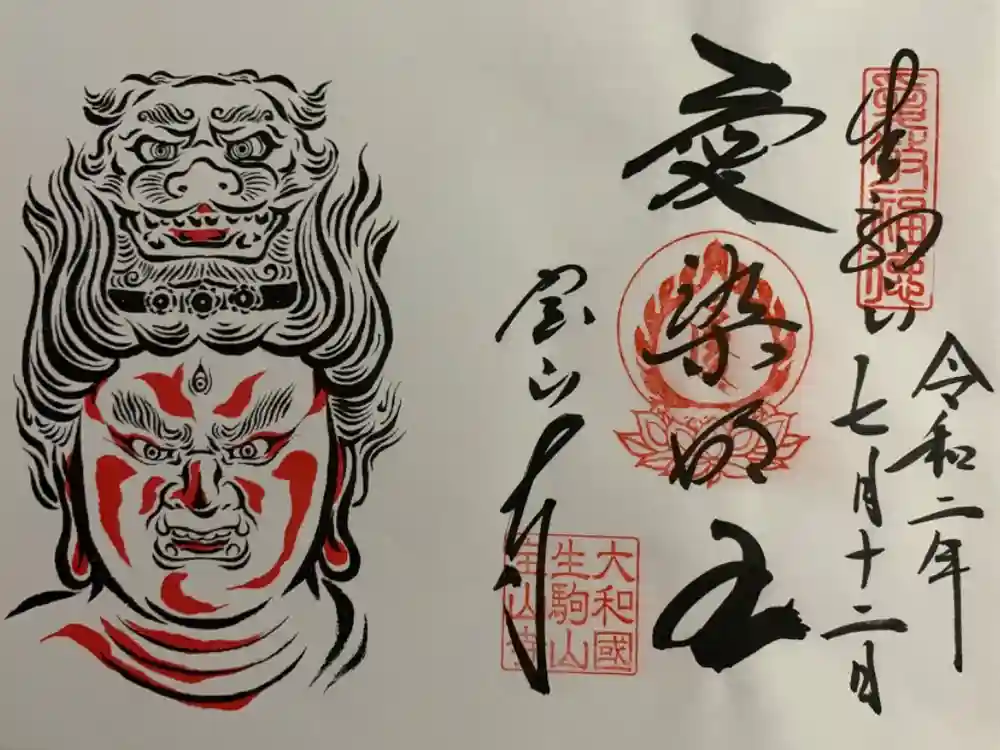 令和二年
生駒山
七月十二日
愛染明王
宝山寺
大和國
生駒山
宝山寺